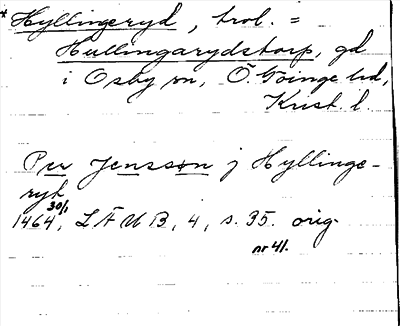 *Hyllingeryd, trol. =
Hullingarydstorp, gd
i Osby sn, Ö. Göinge hd,
Krist. l.
Per Jensson j Hyllinge-
ryk
1464 30/1, LÄUB, 4, s. 35. orig.
nr 41.